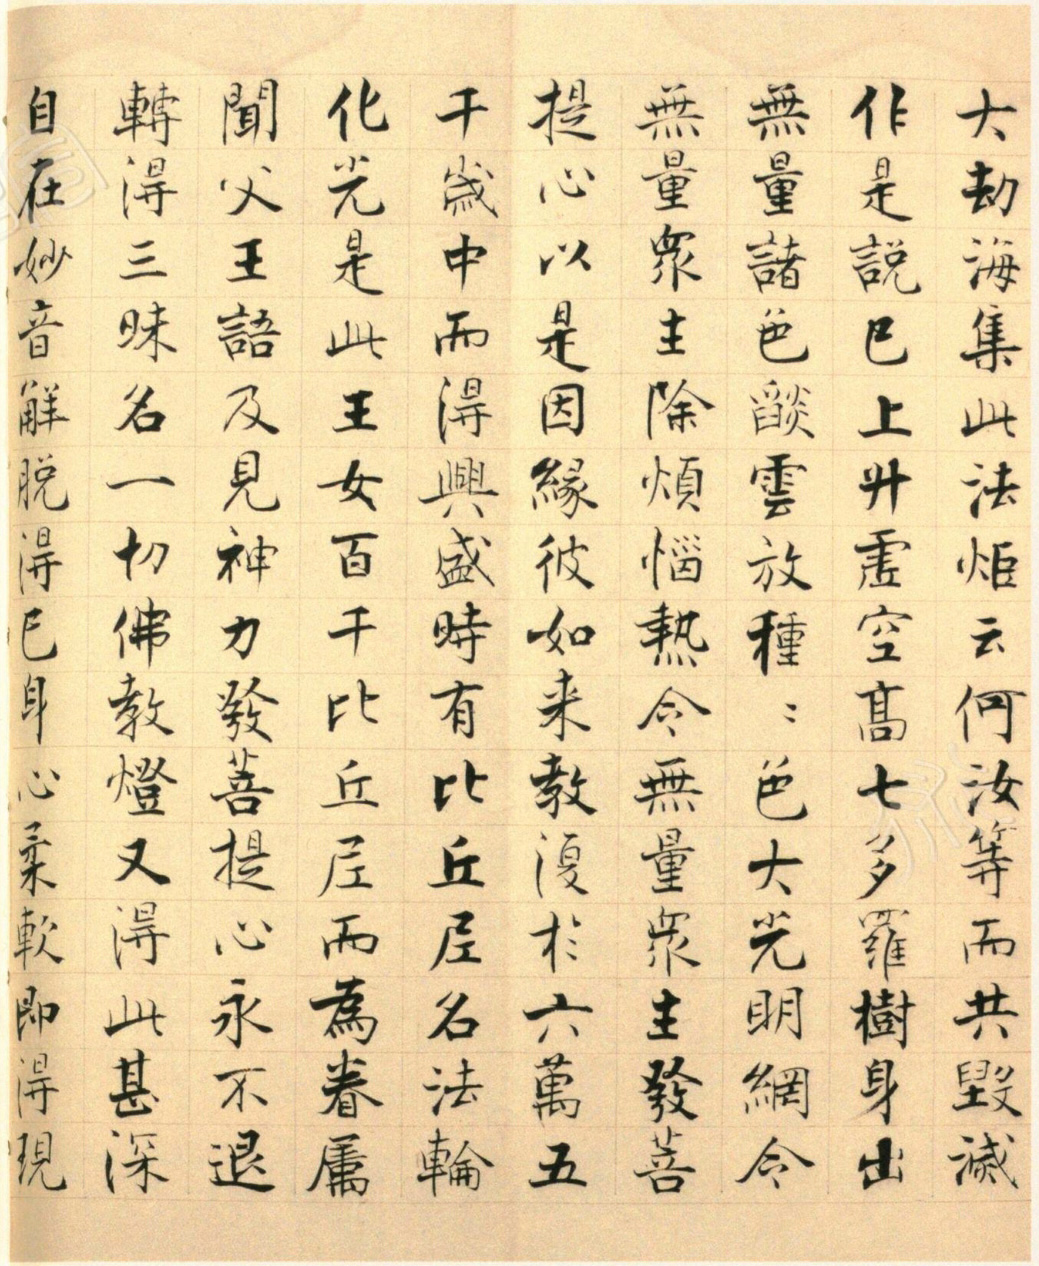 大劫海集此法炬云何汝等而共毀滅
作是説已上升虚空髙七多羅樹身出
無量諸色燄雲放種〻色大光明網令
無量衆生除煩惱熱令無量衆生發菩
提心以是因緣彼如来教復於六萬五
千歲中而得興盛時有比丘尼名法輪
化光是此王女百千比丘尼而為眷屬
聞父王語及見神力發菩提心永不退
轉得三昧名一切佛教燈又得此甚深
自在妙音解脱得已身心柔軟即得現